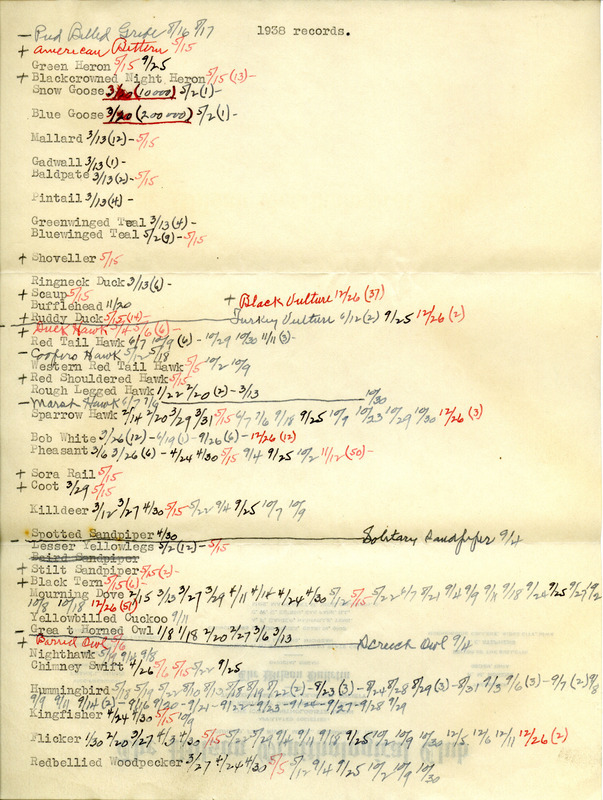 1938 records.
— Pied Billed Grebe 8/16 8/17
+ American Bittern 5/15
Green Heron 5/15 9/25
+ Blackcrowned Night Heron 5/15 (13) —
Snow Goose 3/20 (10000) 5/2 (1) —
Blue Goose 3/20 (200000) 5/2 (1) —
Mallard 3/13 (12) — 5/15
Gadwall 3/13 (1) —
Baldpate 3/13 (2) — 5/15
Pintail 3/13 (4) —
Greenwinged Teal 3/13 (4) —
Bluewinged Teal 5/2 (9) — 5/15
+ Shoveller 5/15
Ringneck Duck 3/13 (6) —
+ Scaup 5/15
+ Black Vulture 12/26 (37)
Bufflehead 11/20
+ Ruddy Duck 5/15 (14) —
Turkey Vulture 6/12 (2) 9/25 12/26 (2)
+ Duck Hawk 5/6 (6) —
Red Tail Hawk 6/7 10/9 (6) — 10/29 10/30 11/11 (3) —
— Coopers Hawk 5/12 5/18
Western Red Tail Hawk 5/5 10/2 10/9
+ Red Shouldered Hawk 5/15
Rough Legged Hawk 1/22 2/20 (2) — 3/13
— Marsh Hawk 6/7 7/6 10/30
Sparrow Hawk 2/14 2/20 3/29 3/31 5/15 6/7 7/6 9/18 9/25 10/9 10/23 10/29 10/30 12/26 (3)
Bob White 3/26 (12) — 6/19 (1) — 9/26 (6) — 12/26 (12)
Pheasant 3/6 3/26 (6) — 4/24 4/30 5/15 9/4 9/25 10/2 11/12 (50) —
+ Sora Rail 5/15
+ Coot 3/29 5/15
Killdeer 3/12 3/27 4/30 5/15 5/22 9/4 9/25 10/7 10/9
— Spotted Sandpiper 4/30
Solitary Sandpiper 9/4
Lesser Yellowlegs 5/2 (12) — 5/15
Baird Sandpiper
+ Stilt Sandpiper 5/15 (2) —
+ Black Tern 5/15 (6) —
Mourning Dove 2/15 3/13 3/27 3/29 4/11 4/14 4/24 4/30 5/12 5/15 5/22 6/7 8/21 9/4 9/9 9/11 9/18 9/20 9/25 9/27
10/8 10/18 12/26 (51)
Yellowbilled Cuckoo 9/11
— Grea t Horned Owl 1/8 1/18 2/20 2/27 3/6 3/13
Screech Owl 9/4
+ Barred Owl 5/6
Nighthawk 5/9 9/4 9/8
Chimney Swift 4/26 5/6 5/15 5/22 9/25
Hummingbird 5/13 5/19 5/22 8/10 8/13 8/18 8/19 8/22 (2) — 8/23 (3) — 8/24 8/28 8/29 (3) — 8/31 9/3 9/6 (3) — 9/7 (2) 9/8
9/9 9/11 9/14 (2) — 9/16 9/20 — 9/21 — 9/22 — 9/23 — 9/24 — 9/27 — 9/28 9/29
Kingfisher 4/24 4/30 5/15 10/9
Flicker 1/30 2/20 3/27 4/3 4/30 5/15 5/22 9/4 9/11 9/18 9/25 10/2 10/9 10/30 12/5 12/6 12/11 12/26 (2)
Redbellied Woodpecker 3/27 4/24 4/30 5/15 5/12 9/4 9/25 10/2 10/9 10/30